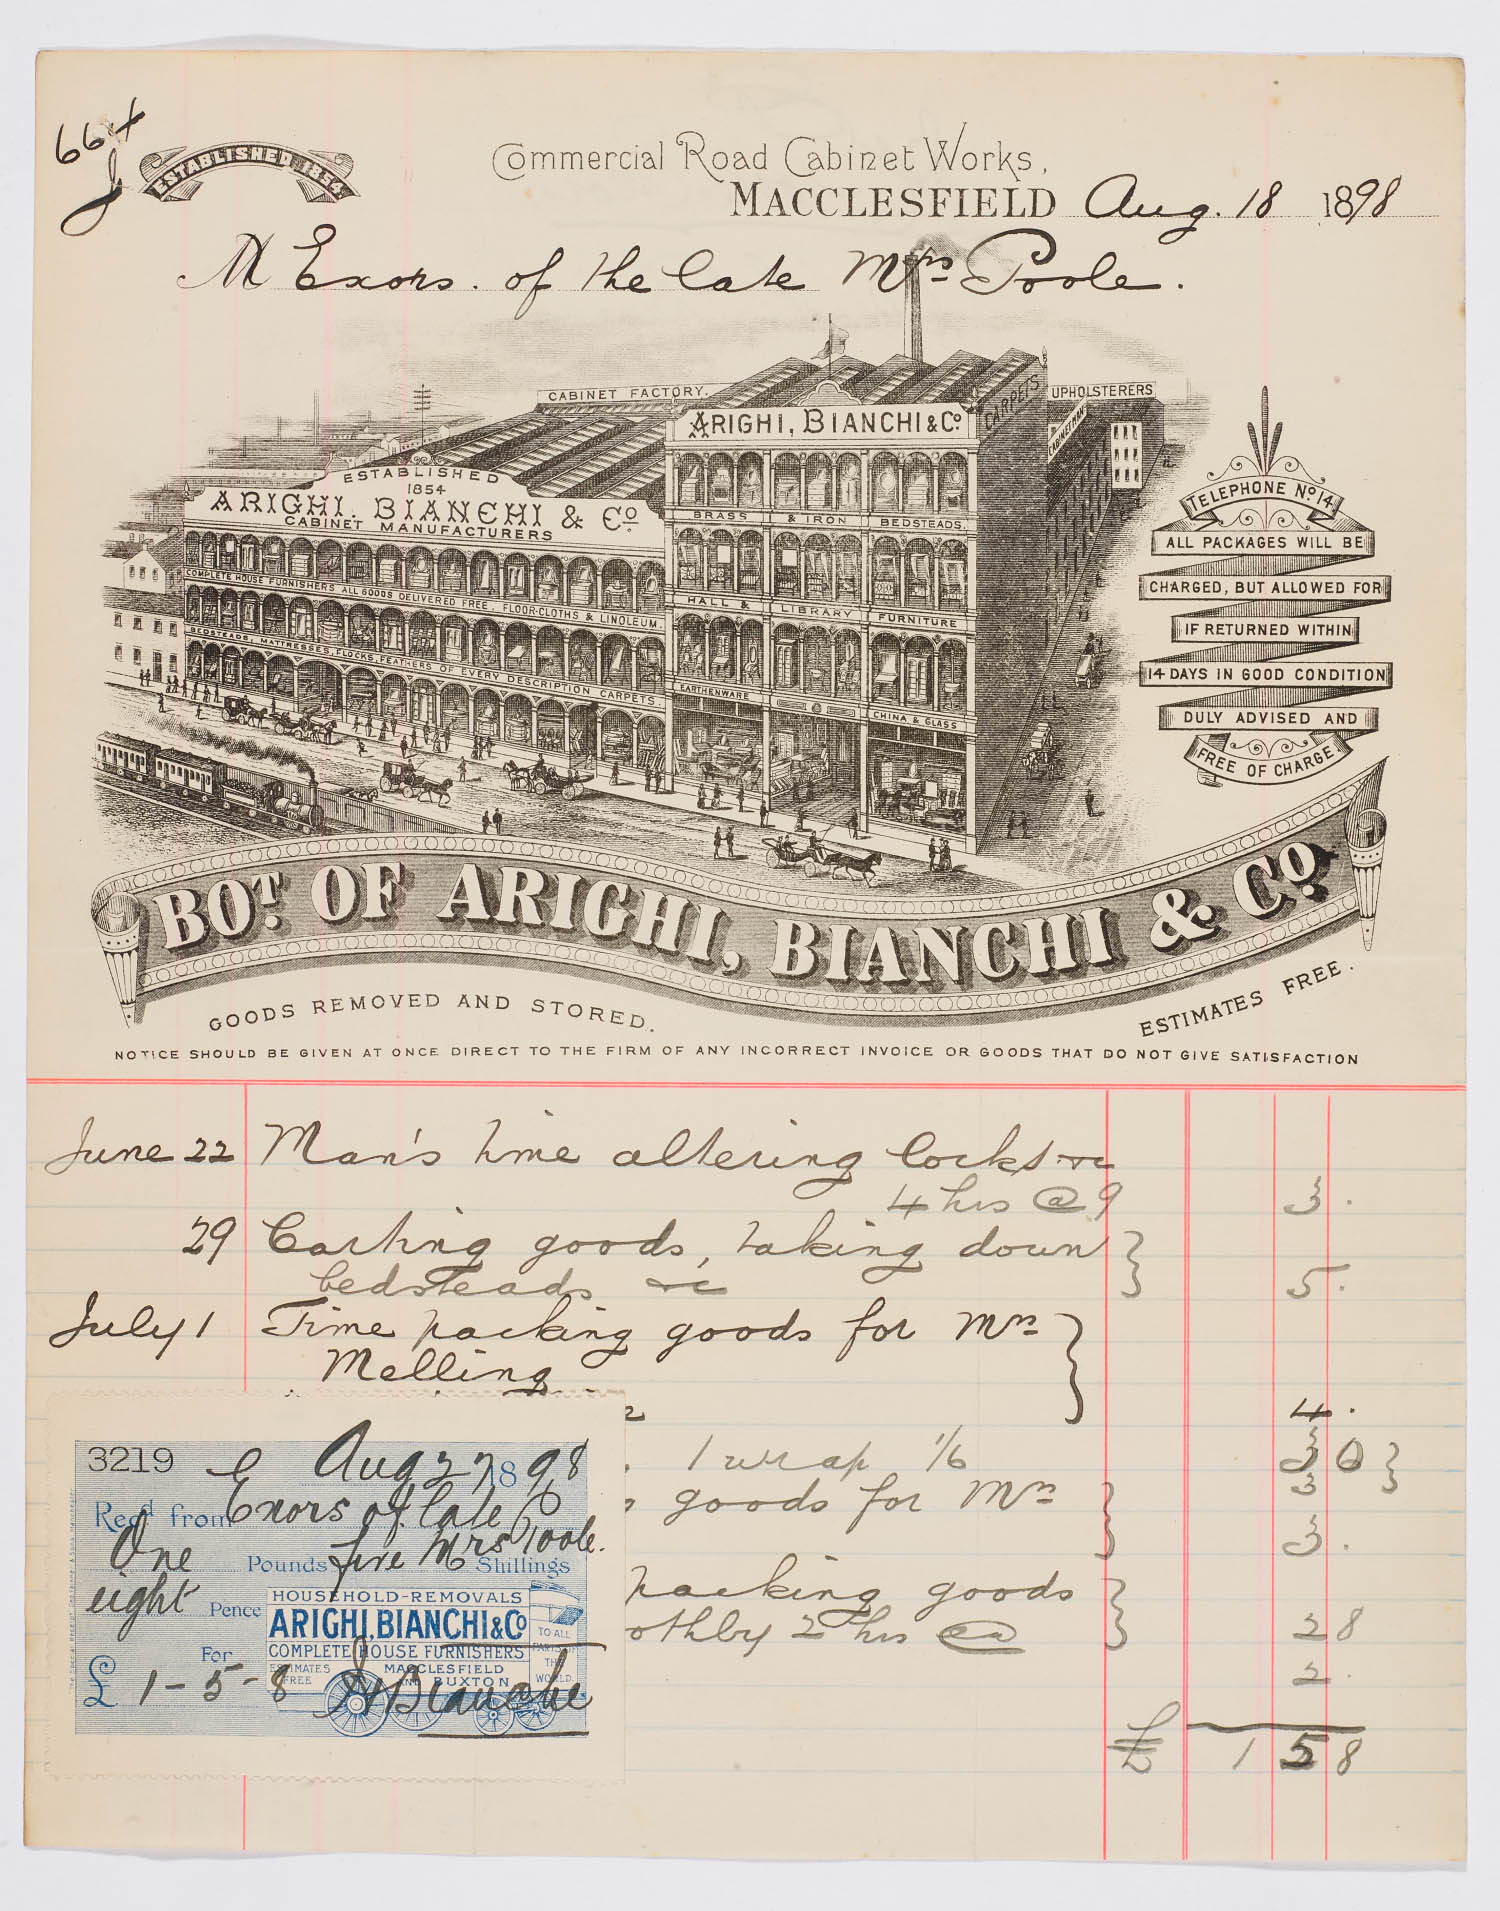 664
ESTABLISHED 1854.
Commercial Road Cabinet Works,
MACCLESFIELD Aug. 18 1898
M Exors. of the late Mrs Poole.
CABINET FACTORY.
CARPETS
UPHOLSTERERS
CABINET MAN
ARIGHI, BIANCHI & Co
ESTABLISHED
1854
ARIGHI, BIANCHI & Co
CABINET MANUFACTURERS
BRASS & IRON BEDSTEADS.
COMPLETE HOUSE FURNISHERS ALL GOODS DELIVERED FREE, FLOOR-CLOTHS & LINOLEUM.
HALL & LIBRARY FURNITURE
BEDSTEADS, MATTRESSES, FLOCKS, FEATHERS OF EVERY DESCRIPTION CARPETS.
EARTHENWARE
CHINA & GLASS
TELEPHONE No 14.
ALL PACKAGES WILL BE
CHARGED, BUT ALLOWED FOR
IF RETURNED WITHIN
14 DAYS IN GOOD CONDITION
DULY ADVISED AND
FREE OF CHARGE
BOT. OF ARIGHI, BIANCHI & Co.
GOODS REMOVED AND STORED.
ESTIMATES FREE.
NOTICE SHOULD BE GIVEN AT ONCE DIRECT TO THE FIRM OF ANY INCORRECT INVOICE OR GOODS THAT DO NOT GIVE SATISFACTION
June 22 Man's time altering locks &c
4 hrs @ 9 3 .
29 Carting goods, taking down
bedsteads &c 5 .
July 1 Time packing goods for Mrs
Melling
4 .
1 wrap 1/6
3
goods for Mrs
3 .
packing goods
othby 2 hrs @ 2 8
2 .
£ 1 5 8
3219 Aug 27 1898
Recd from Exors of late
Mrs Poole.
One Pounds five Shillings
eight Pence
For
£ 1-5-8
HOUSEHOLD-REMOVALS
ARIGHI, BIANCHI & Co
COMPLETE HOUSE FURNISHERS
ESTIMATES FREE
MACCLESFIELD
AND BUXTON
TO ALL
PARTS OF
THE
WORLD.